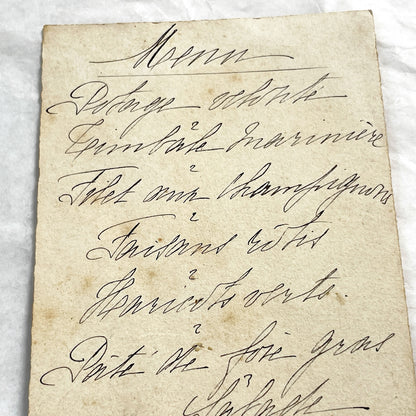 Menu
Potage velouté
Timbâle marinière
Filet aux champignons
Faisans rôtis
Haricots verts.
Pâté de foie gras
Salade